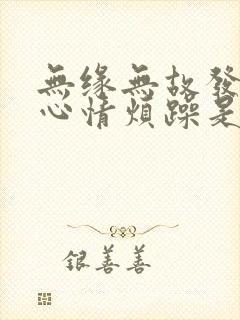 無緣無故發
心情煩躁是
银善善